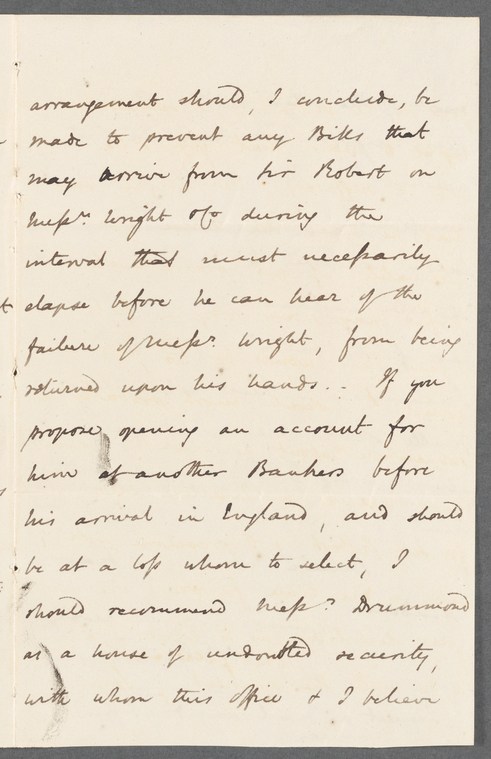 arrangement should, I conclude, be
made to prevent any Bills that
may arrive from Sir Robert on
Messrs. Wright & Co during the
interval that must necessarily
elapse before he can hear of the
failure of Messrs. Wright, from being
returned upon his hands.. If you
propose opening an account for
him at another Bankers before
his arrival in England, and should
be at a loss whom to select, I
should recommend Messrs. Drummond
as a house of undoubted security,
with whom this office & I believe